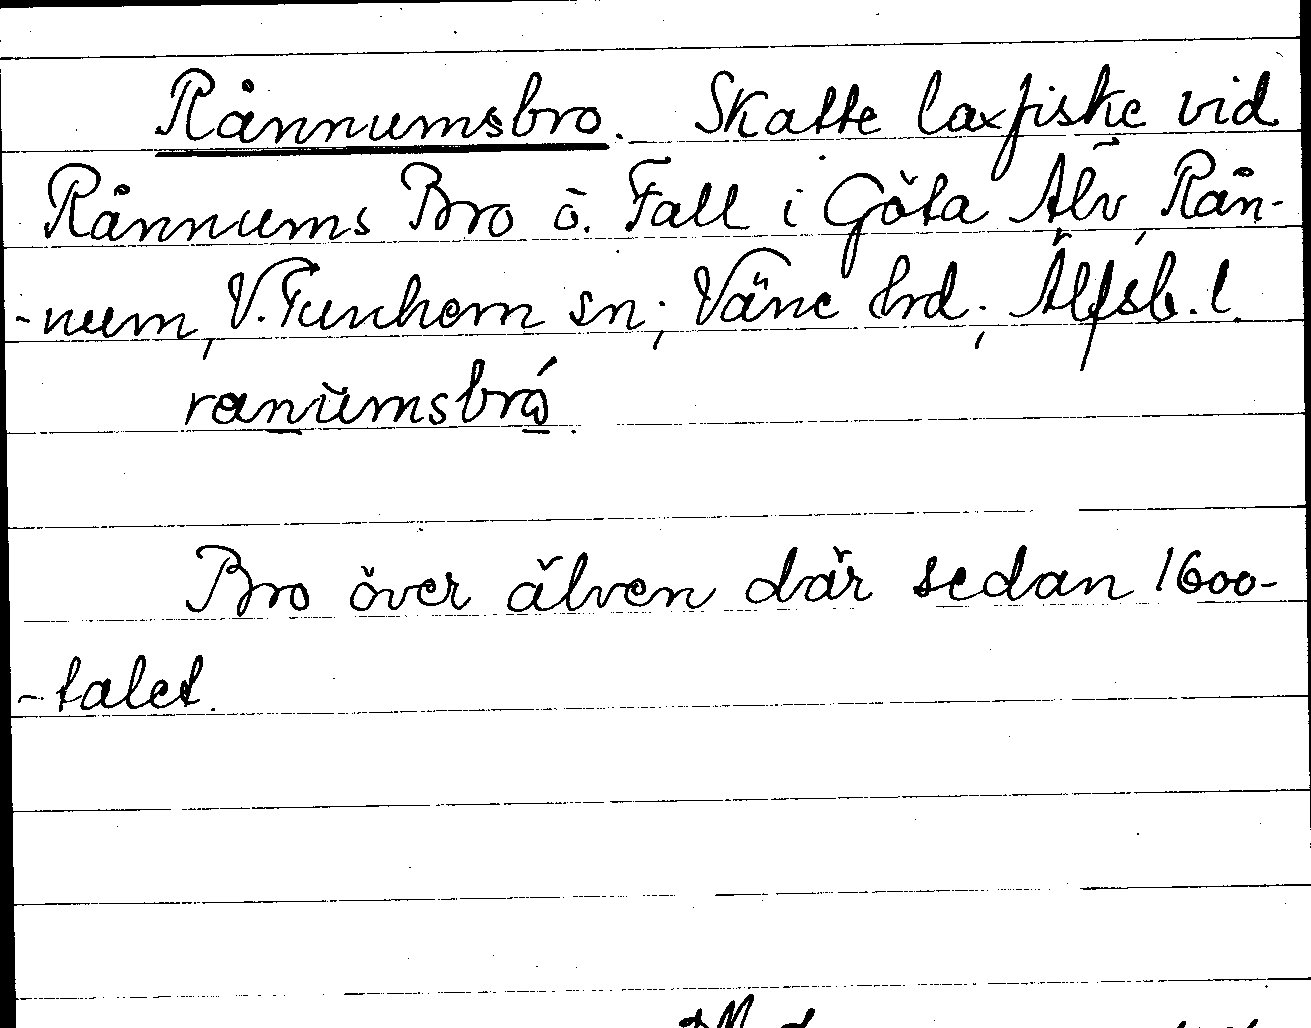 Rånnumsbro. Skatte laxfiske vid
Rånnums Bro ö. Fall i Göta Älv, Rån-
-num, V. Tunhem sn; Väne hrd; Älfsb. l.
ranumsbró
Bro över älven där sedan 1600-
-talet.